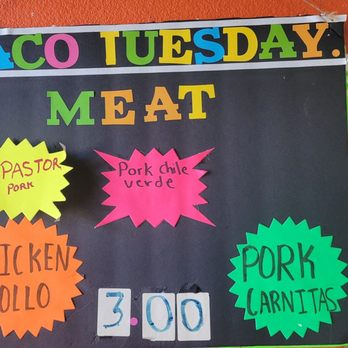 ACO TUESDAY.
MEAT
PASTOR
PORK
Pork chile
verde
ICKEN
OLLO
3.00
PORK
CARNITAS